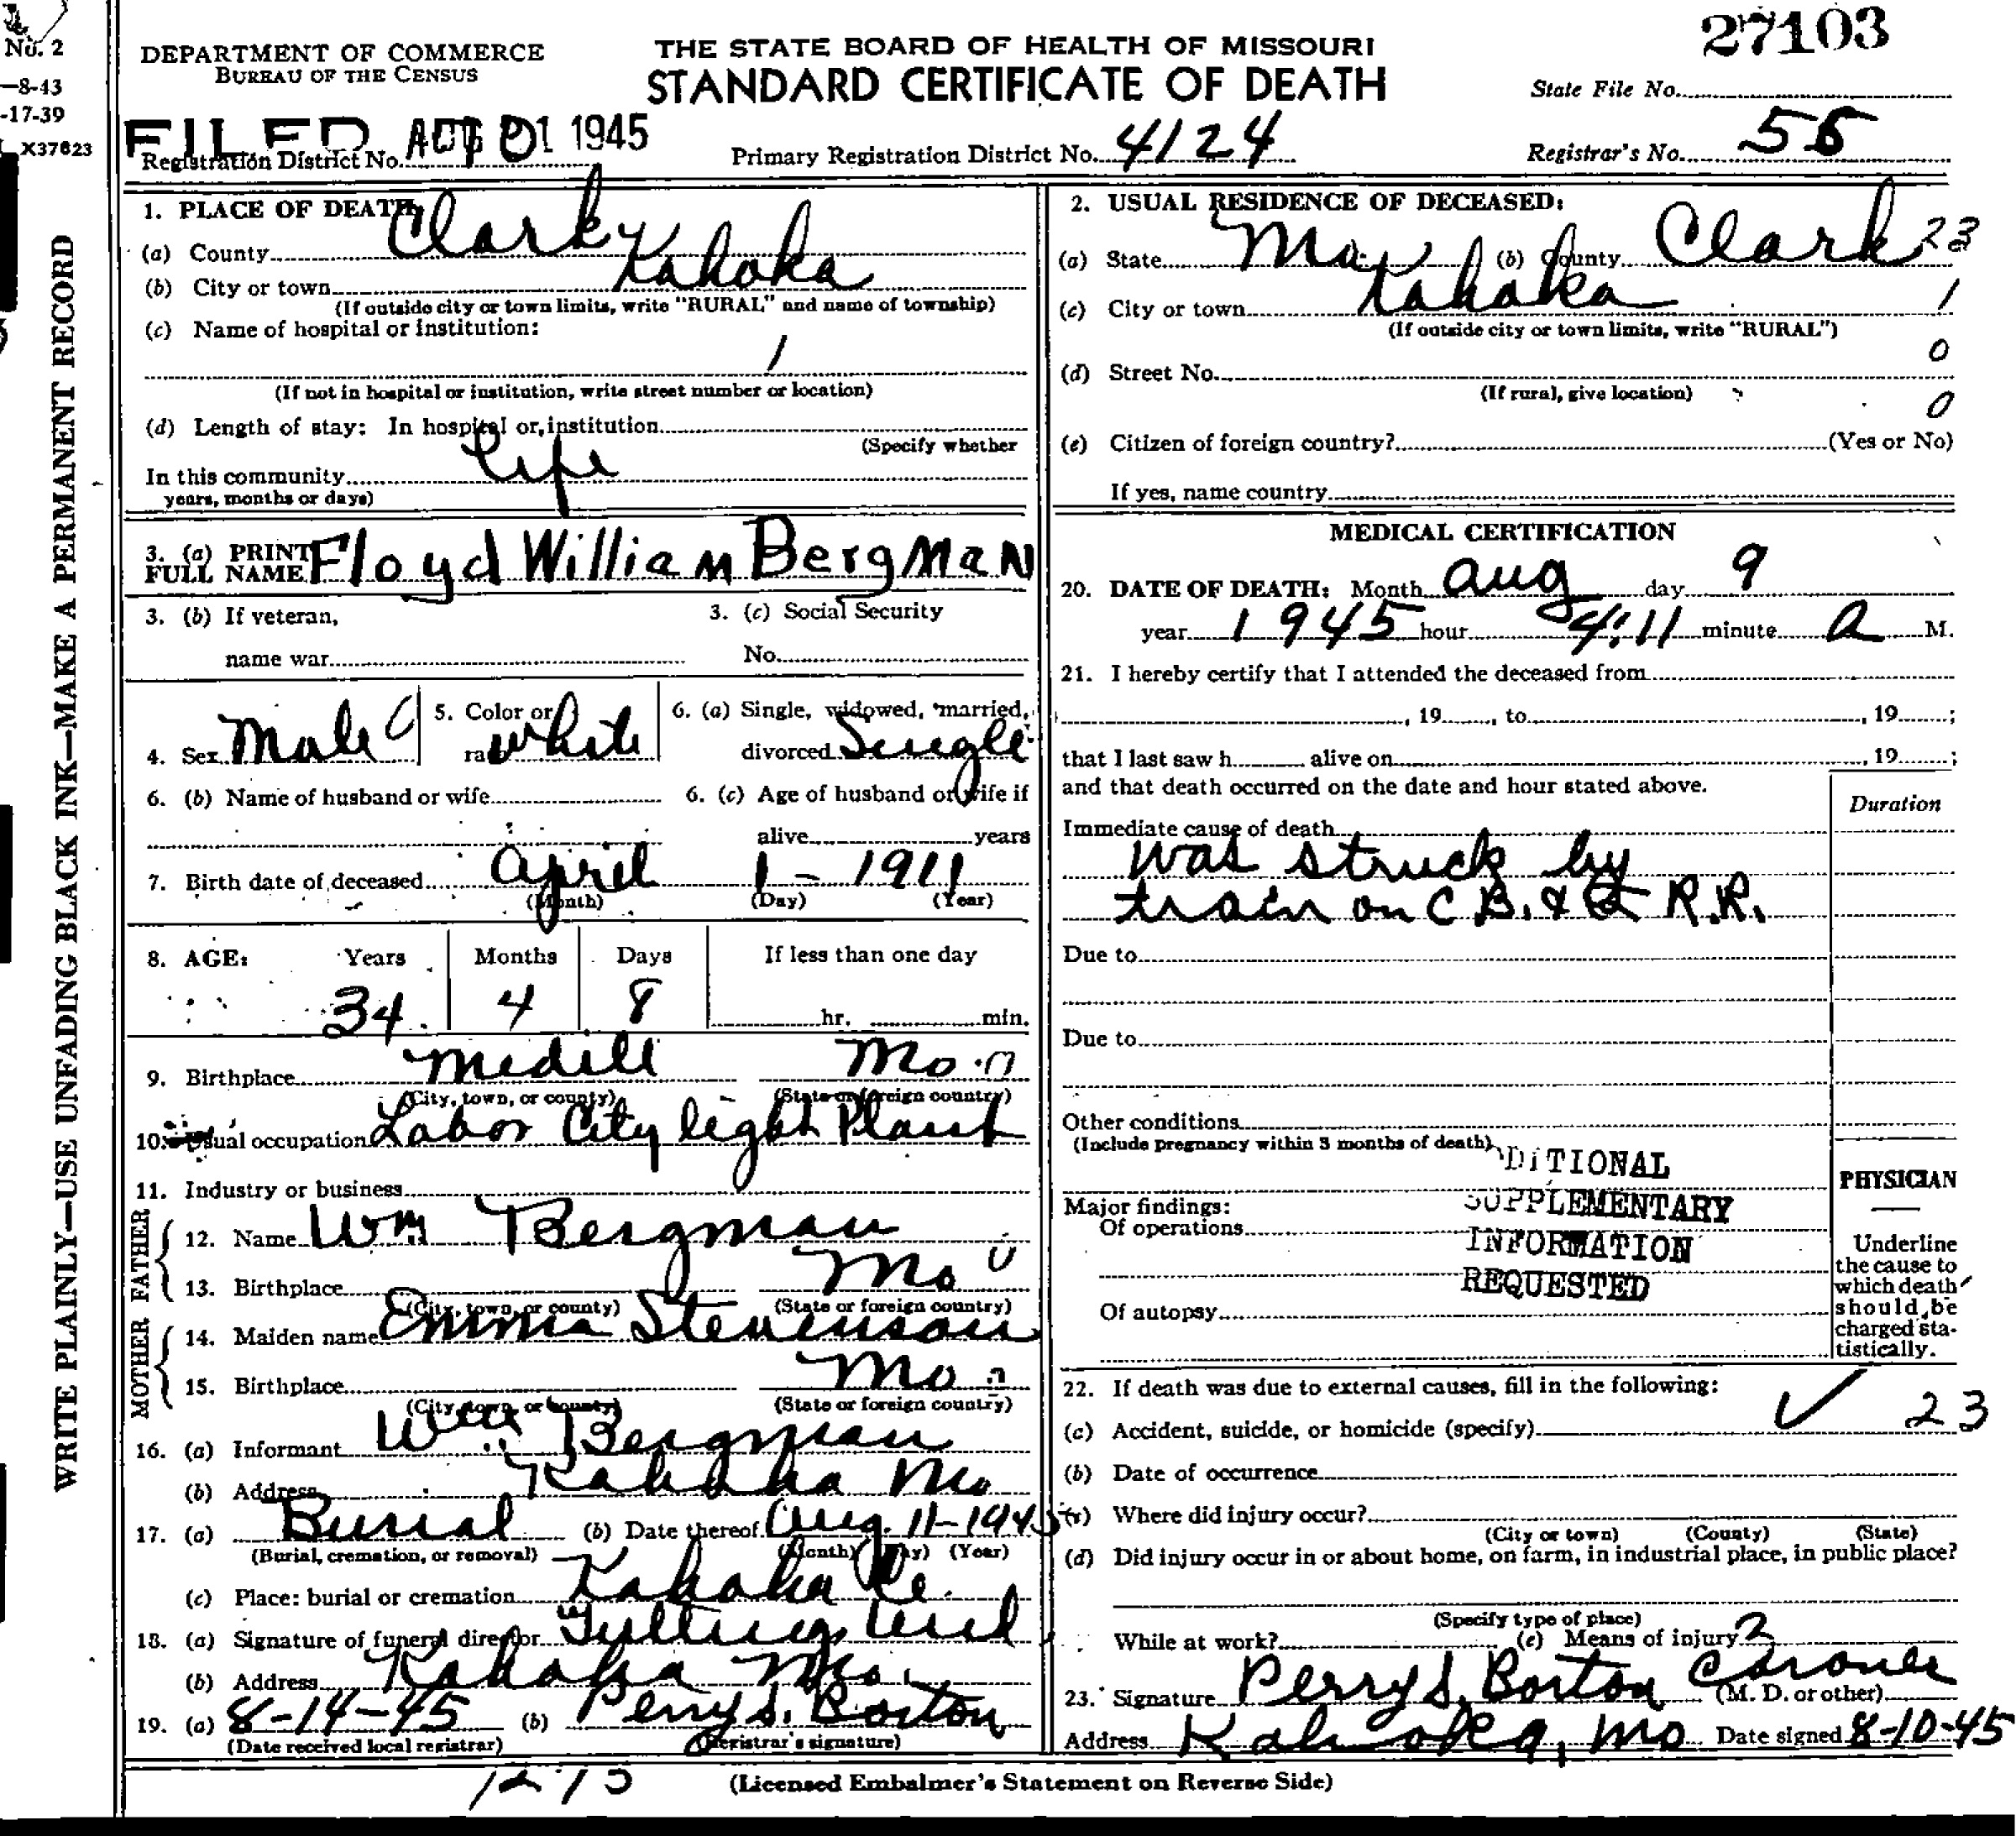 No. 2
—8-43
-17-39
X37823
WRITE PLAINLY—USE UNFADING BLACK INK—MAKE A PERMANENT RECORD
DEPARTMENT OF COMMERCE
BUREAU OF THE CENSUS
THE STATE BOARD OF HEALTH OF MISSOURI
STANDARD CERTIFICATE OF DEATH
27103
State File No.
FILED 1945
Registration District No.
Primary Registration District No. 4124
Registrar's No. 55
1. PLACE OF DEATH:
(a) County Clark
(b) City or town Kahoka
(If outside city or town limits, write "RURAL" and name of township)
(c) Name of hospital or institution:
1
(If not in hospital or institution, write street number or location)
(d) Length of stay: In hospital or institution
(Specify whether
In this community life
years, months or days)
3. (a) PRINT
FULL NAME Floyd William Bergman
3. (b) If veteran, 3. (c) Social Security
name war No.
4. Sex Male 5. Color or race white 6. (a) Single, widowed, married, divorced Single
6. (b) Name of husband or wife 6. (c) Age of husband or wife if
alive years
7. Birth date of deceased April 1 - 1911
(Month) (Day) (Year)
8. AGE: Years Months Days If less than one day
34 4 8 hr. min.
9. Birthplace Medill Mo.
(City, town, or county) (State or foreign country)
10. Usual occupation Labor City light Plant
11. Industry or business
FATHER
12. Name Wm Bergman
13. Birthplace Mo
(City, town, or county) (State or foreign country)
MOTHER
14. Maiden name Emma Stevenson
15. Birthplace Mo
(City, town, or county) (State or foreign country)
16. (a) Informant Wm. Bergman
(b) Address Kahoka Mo
17. (a) Burial (b) Date thereof Aug. 11-1945
(Burial, cremation, or removal) (Month) (Day) (Year)
(c) Place: burial or cremation Kahoka Ce.
18. (a) Signature of funeral director
(b) Address Kahoka Mo.
19. (a) 8-14-45 (b) Perry S. Borton
(Date received local registrar) (Registrar's signature)
2. USUAL RESIDENCE OF DECEASED:
(a) State Mo. (b) County Clark 23
(c) City or town Kahoka 1
(If outside city or town limits, write "RURAL")
0
(d) Street No.
(If rural, give location)
0
(e) Citizen of foreign country? (Yes or No)
If yes, name country
MEDICAL CERTIFICATION
20. DATE OF DEATH: Month Aug day 9
year 1945 hour 4:11 minute a M.
21. I hereby certify that I attended the deceased from
, 19 , to , 19 ;
that I last saw h alive on , 19 ;
and that death occurred on the date and hour stated above.
Duration
Immediate cause of death
was struck by
train on C B. & Q R.R.
Due to
Due to
Other conditions
(Include pregnancy within 3 months of death)
DITIONAL
SUPPLEMENTARY
INFORMATION
REQUESTED
Major findings:
Of operations
Of autopsy
PHYSICIAN
Underline
the cause to
which death
should be
charged sta-
tistically.
22. If death was due to external causes, fill in the following:
(a) Accident, suicide, or homicide (specify) 23
(b) Date of occurrence
(c) Where did injury occur?
(City or town) (County) (State)
(d) Did injury occur in or about home, on farm, in industrial place, in public place?
(Specify type of place)
While at work? (e) Means of injury
23. Signature Perry S. Borton Coroner
(M. D. or other)
Address Kahoka, Mo Date signed 8-10-45
(Licensed Embalmer's Statement on Reverse Side)